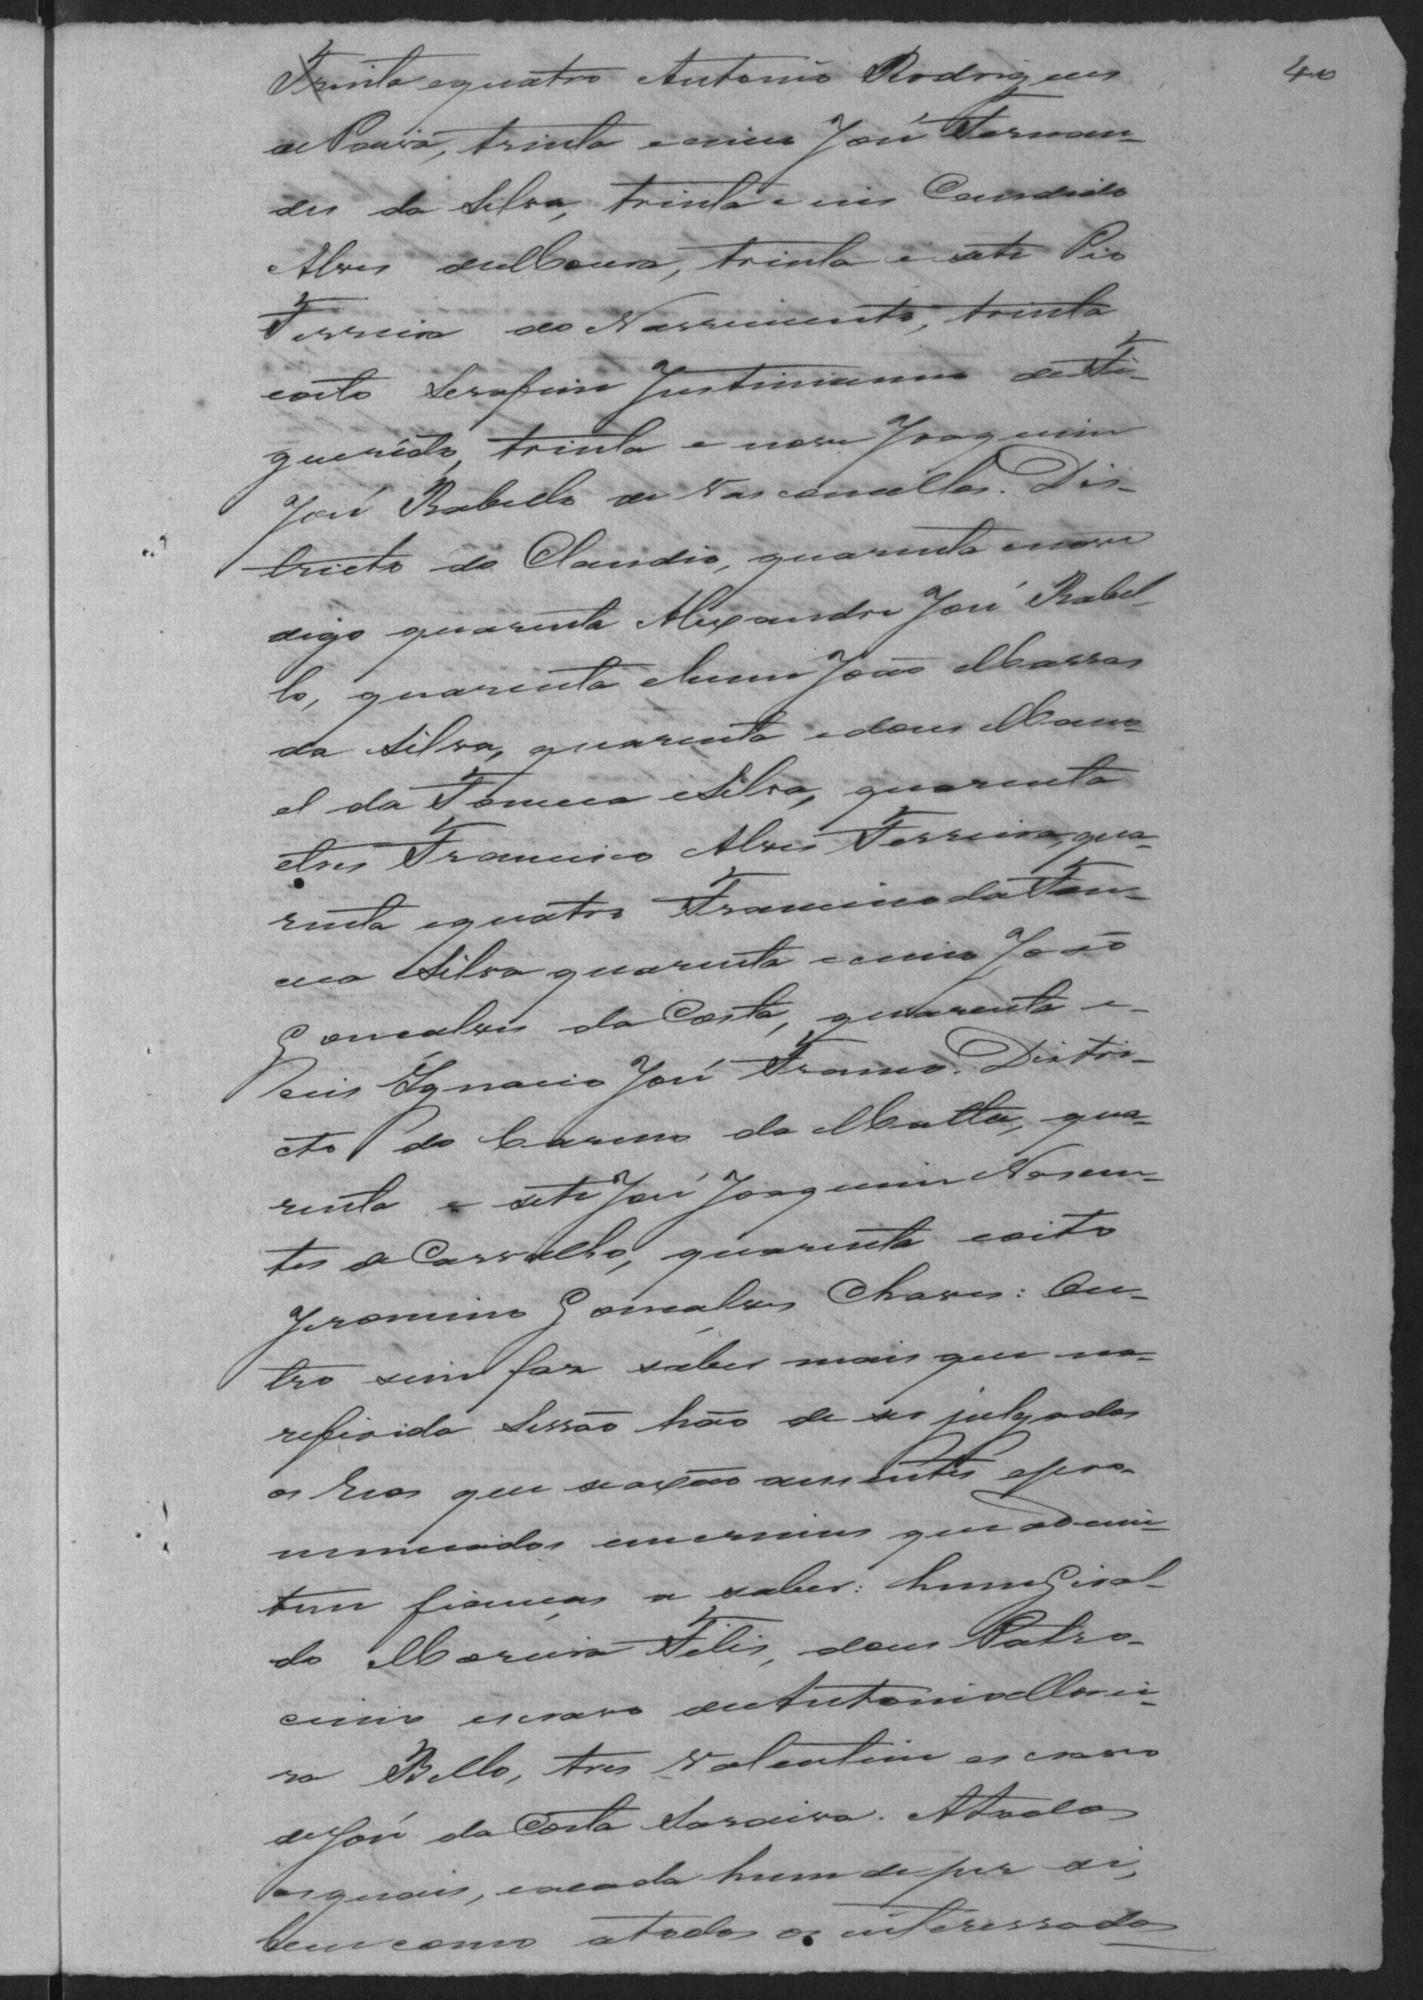 40
Trinta e quatro Antonio Rodrigues
de Paiva, trinta e cinco José Fernan-
des da Silva, trinta e seis Candido
Alves de Moura, trinta e sete Pio
Ferreira do Nascimento, trinta
e oito Serafim Justinianno de Fi-
gueredo, trinta e nove Joaquim
José Rabello de Vasconcellos. Dis-
tricto do Claudio, quarenta e nove
digo quarenta Alexandre José Rabel-
lo, quarenta e hum João Marras
da Silva, quarenta e dous Mano-
el da Fonceca e Silva, quarenta
e tres Francisco Alves Ferreira, qua-
renta e quatro Francisco da Fon-
ceca e Silva quarenta e cinco João
Gonçalves da Costa, quarenta e
seis Ignacio José Franco. Distri-
cto do Carmo da Matta, qua-
renta e sete José Joaquim Nasen-
tes de Carvalho, quarenta e oito
Jeronimo Gonçalves Chaves: Ou-
tro sim faz saber mais que na
referida Sessão hão de ser julgados
os Reos que se axão ausentes e pro-
nunciados em crimes que admi-
tem fianças a saber: hum Giral-
do Moreira Felis, dous Patro-
cinio escravo de Antonio Morei-
ra Bello, tres Valentim escravo
de José da Costa Saraiva. A todos
os quais, e a cada hum de per si,
bem como a todos os interessados